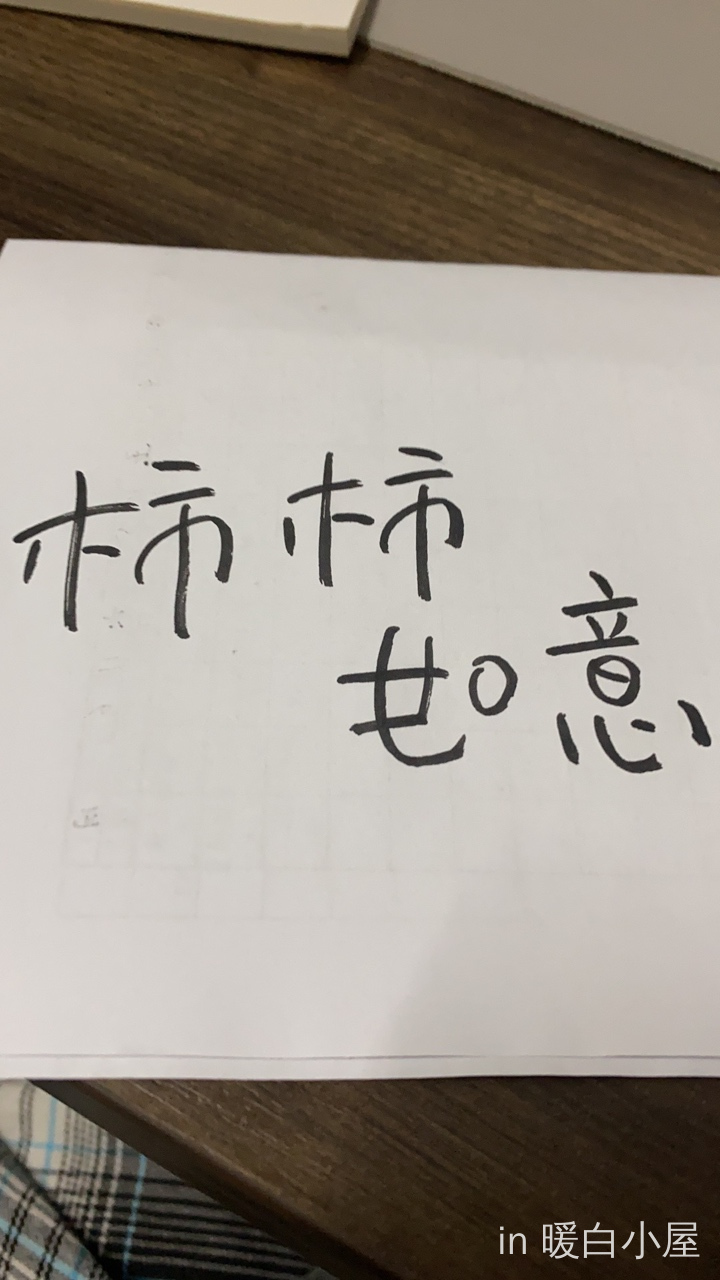 柿柿
如意
in 暖白小屋